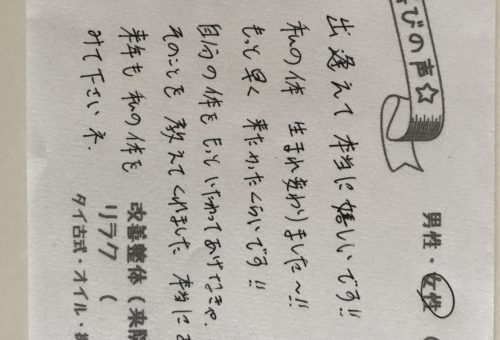 びの声☆
男性・女性（
出逢えて 本当に嬉しいです!!
私の体 生まれ変わりました〜!!
もっと早く 来たかったくらいです!!
自分の体をもっといたわってあげなきゃ。
そのことを 教えてくれました 本当に
来年も 私の体を
みて下さいネ。
改善整体（来院
リラク（
タイ古式・オイル・